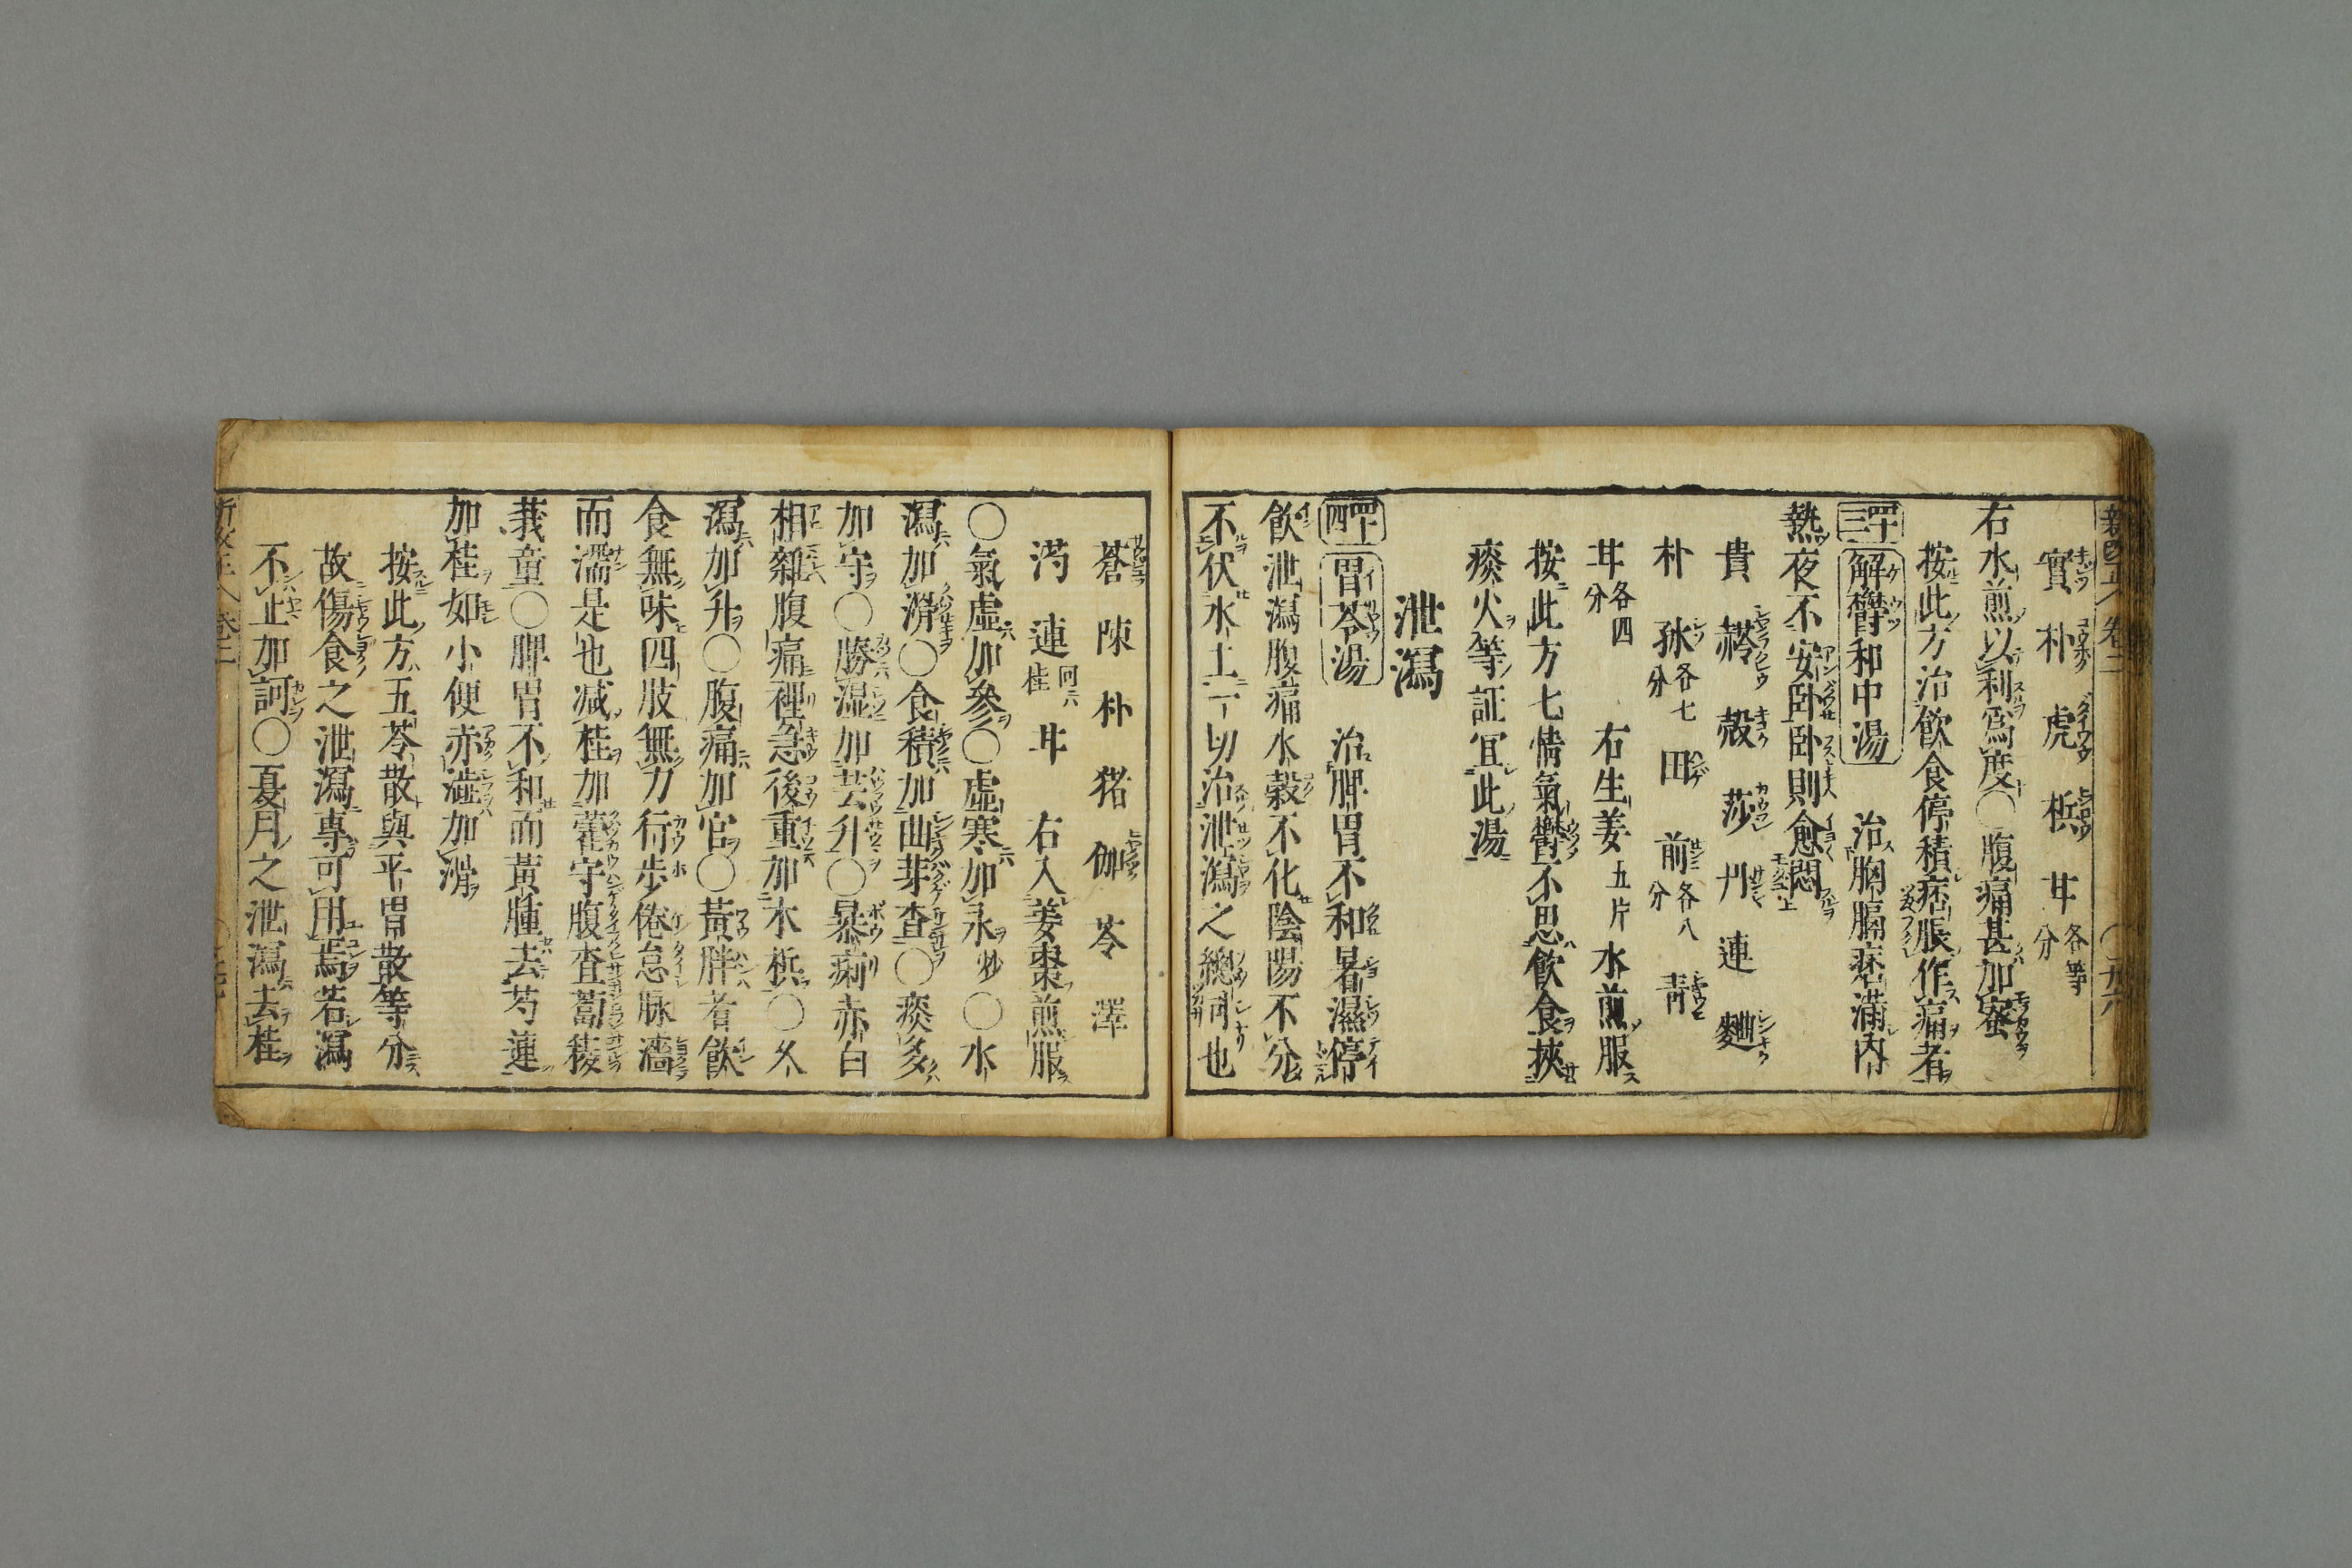 實 朴 虎 梹 甘 各等分
右水煎以利爲度〇腹痛甚加蜜
按此方治飲食停積痞脹作痛者
四十三 解欝和中湯 治胸膈痞滿内
熱夜不安卧卧則愈悶
貴 茯 殻 莎 連 麯
朴 各七分 田 前 各八分 青
甘 各四分 右生姜五片水煎服
按此方七情氣欝不思飲食挾
痰火等証宜此湯
泄瀉
四十四 胃苓湯 治脾胃不和暑濕停
飲泄瀉腹痛水穀不化陰陽不分
不伏水土一切治泄瀉之總司也
蒼 陳 朴 猪 伽 苓 澤
芍 連 桂 甘 右入姜棗煎服
〇氣虛加參〇虛寒加永炒〇水
瀉加滑〇食積加曲芽査〇痰多
加守〇勝湿加芸升〇暴痢赤白
相雜腹痛裡急後重加木梹〇久
瀉加升〇腹痛加官〇黃胖者飲
食無味四肢無力行步倦怠脉濇
而濡是也减桂加藿守腹査蔔稜
莪童〇脾胃不和而黃腫去芍連
加桂如小便赤澁加滑
按此方五苓散與平胃散等分
故傷食之泄瀉專可用焉若瀉
不止加訶〇夏月之泄瀉去桂